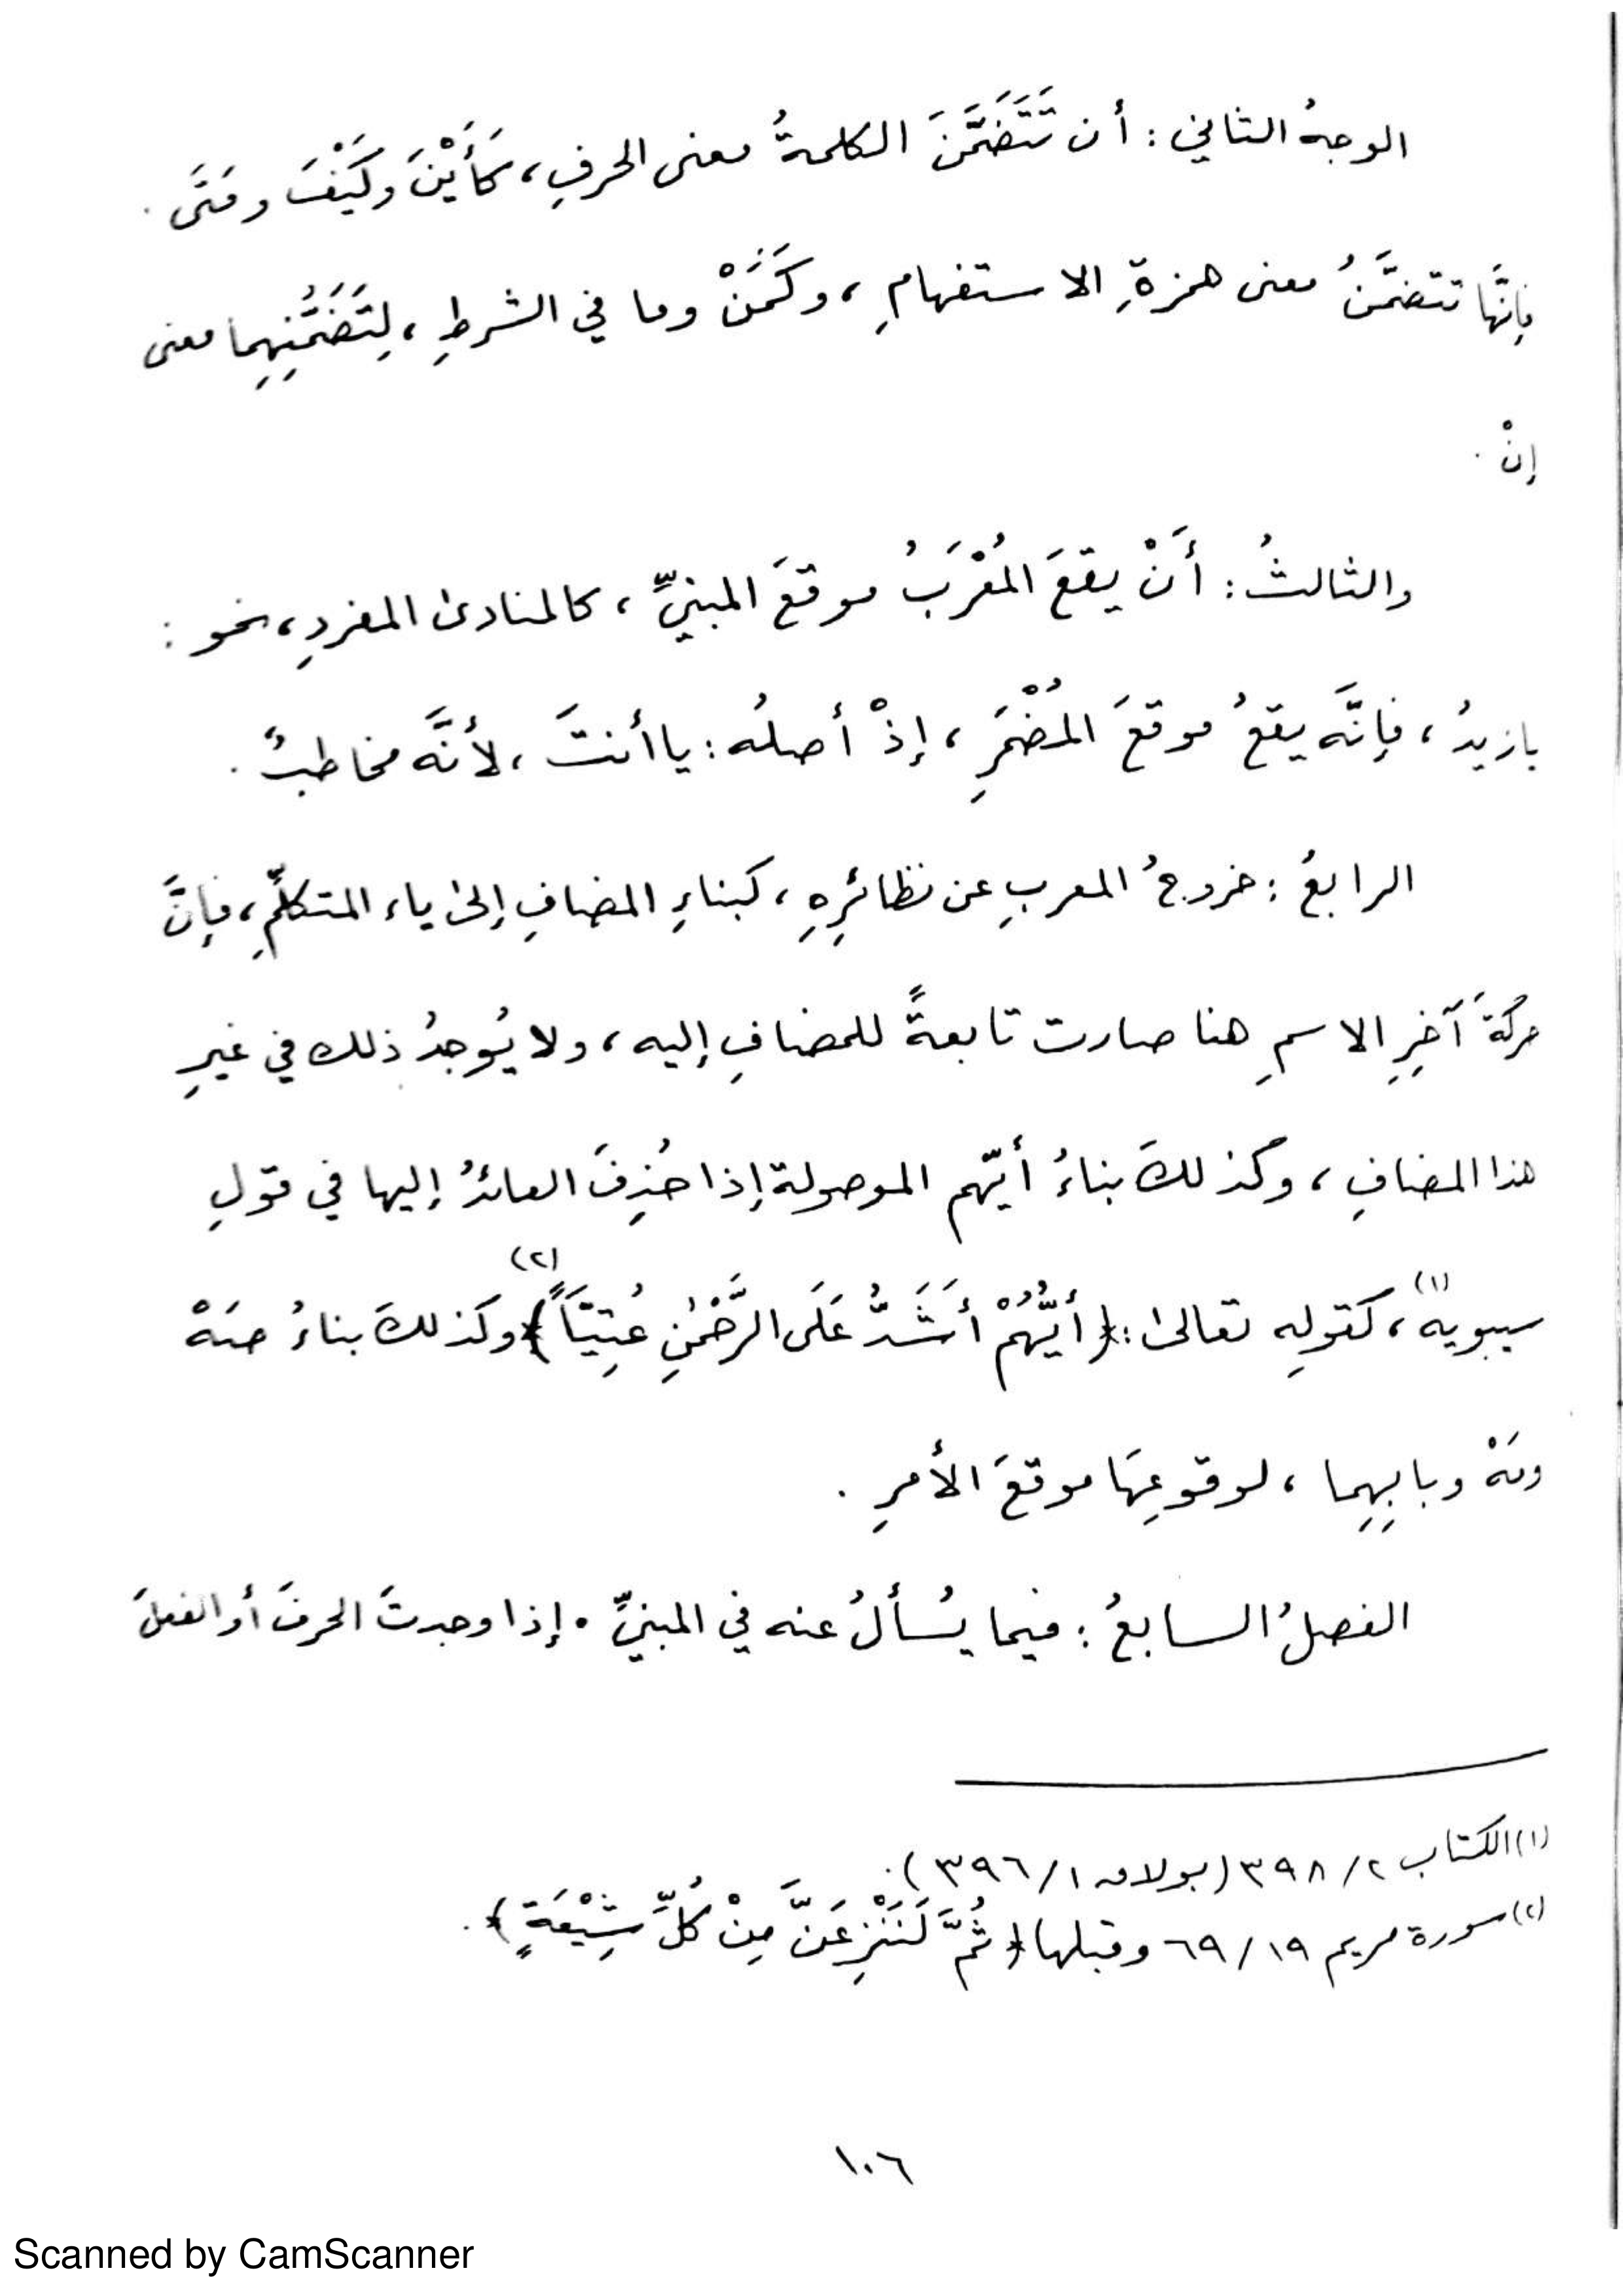 الوجهُ الثاني : أن تَتَضَمَّنَ الكلمةُ معنى الحرفِ ، كَأَيْنَ وكَيْفَ ومَتَى .
فإنَّها تتضمَّنُ معنى همزةِ الاستفهامِ ، وكَمَنْ وما في الشرطِ ، لِتَضَمُّنِهِما معنى
إنْ .
والثالثُ : أَنْ يقعَ المُعْرَبُ موقعَ المبنيِّ ، كالمنادى المفردِ ، نحو :
يازيدُ ، فإنَّه يقعُ موقعَ المُضْمَرِ ، إذْ أصلُه : يا أنتَ ، لأنَّه مخاطبٌ .
الرابعُ : خروجُ المعربِ عن نظائرِهِ ، كبناءِ المضافِ إلى ياء المتكلِّمِ ، فإنَّ
حركةَ آخِرِ الاسمِ هنا صارت تابعةً للمضافِ إليه ، ولا يُوجدُ ذلك في غيرِ
هذا المضافِ ، وكذلكَ بناءُ أيّهم الموصولة إذا حُذِفَ العائدُ إليها في قولِ
سيبويه (١) ، كقولِه تعالى : ﴿ أَيُّهُمْ أَشَدُّ عَلَى الرَّحْمٰنِ عُتِيَّاً ﴾ (٢) وكذلكَ بناءُ صَهْ
ومَهْ وبابِهِما ، لوقوعِهَا موقعَ الأمرِ .
الفصلُ السابعُ : فيما يُسألُ عنه في المبنيِّ . إذا وجدتَ الحرفَ أو الفعلَ
(١) الكتاب ٢/ ٣٩٨ (بولاق ١/ ٣٩٦) .
(٢) سورة مريم ١٩/ ٦٩ وقبلها ﴿ ثُمَّ لَنَنْزِعَنَّ مِنْ كُلِّ شِيْعَةٍ ﴾ .
١٠٦
Scanned by CamScanner